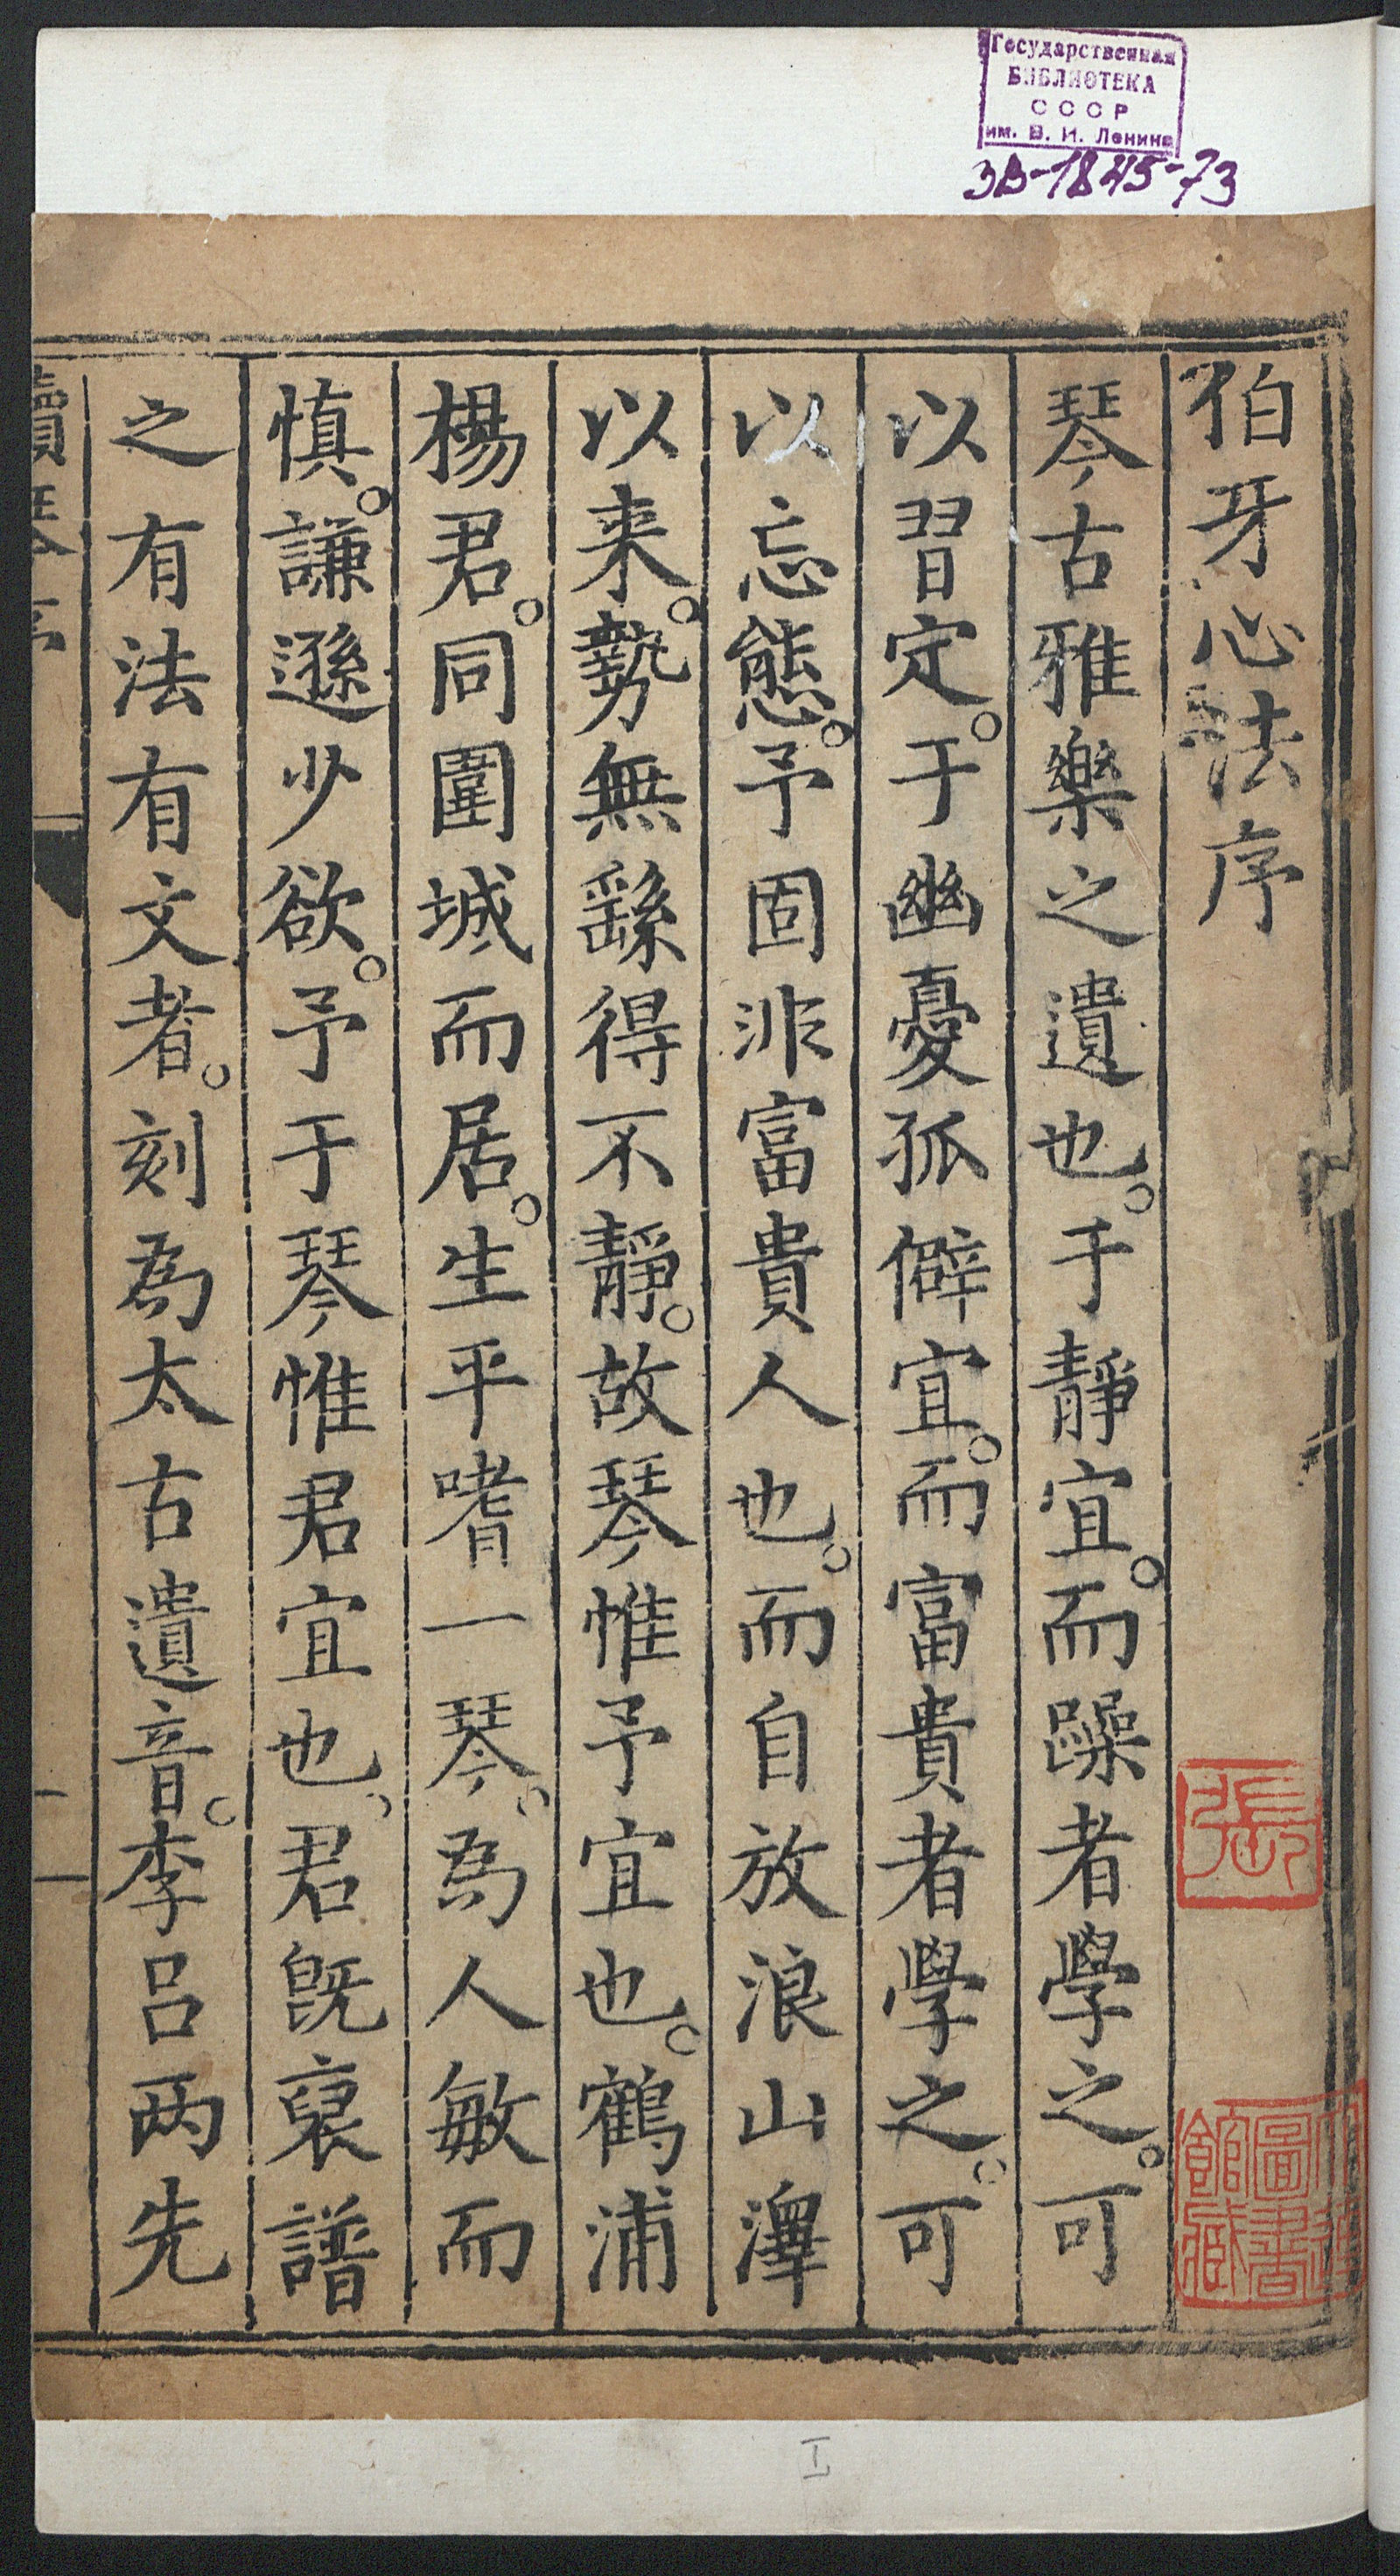 Государственная
БИБЛИОТЕКА
СССР
им. В. И. Ленина
3В-1845-73
伯牙心法序
琴古雅樂之遺也。于靜宜。而躁者學之。可
以習定。于幽憂孤僻宜。而富貴者學之。可
以忘態。予固非富貴人也。而自放浪山澤
以来。勢無繇得不靜。故琴惟予宜也。鶴浦
楊君。同圍城而居。生平嗜一琴。為人敏而
慎。謙遜少欲。予于琴惟君宜也。君既裒譜
之有法有文者。刻為太古遺音。李呂兩先
續琴序
一
張
圖書
館藏
I